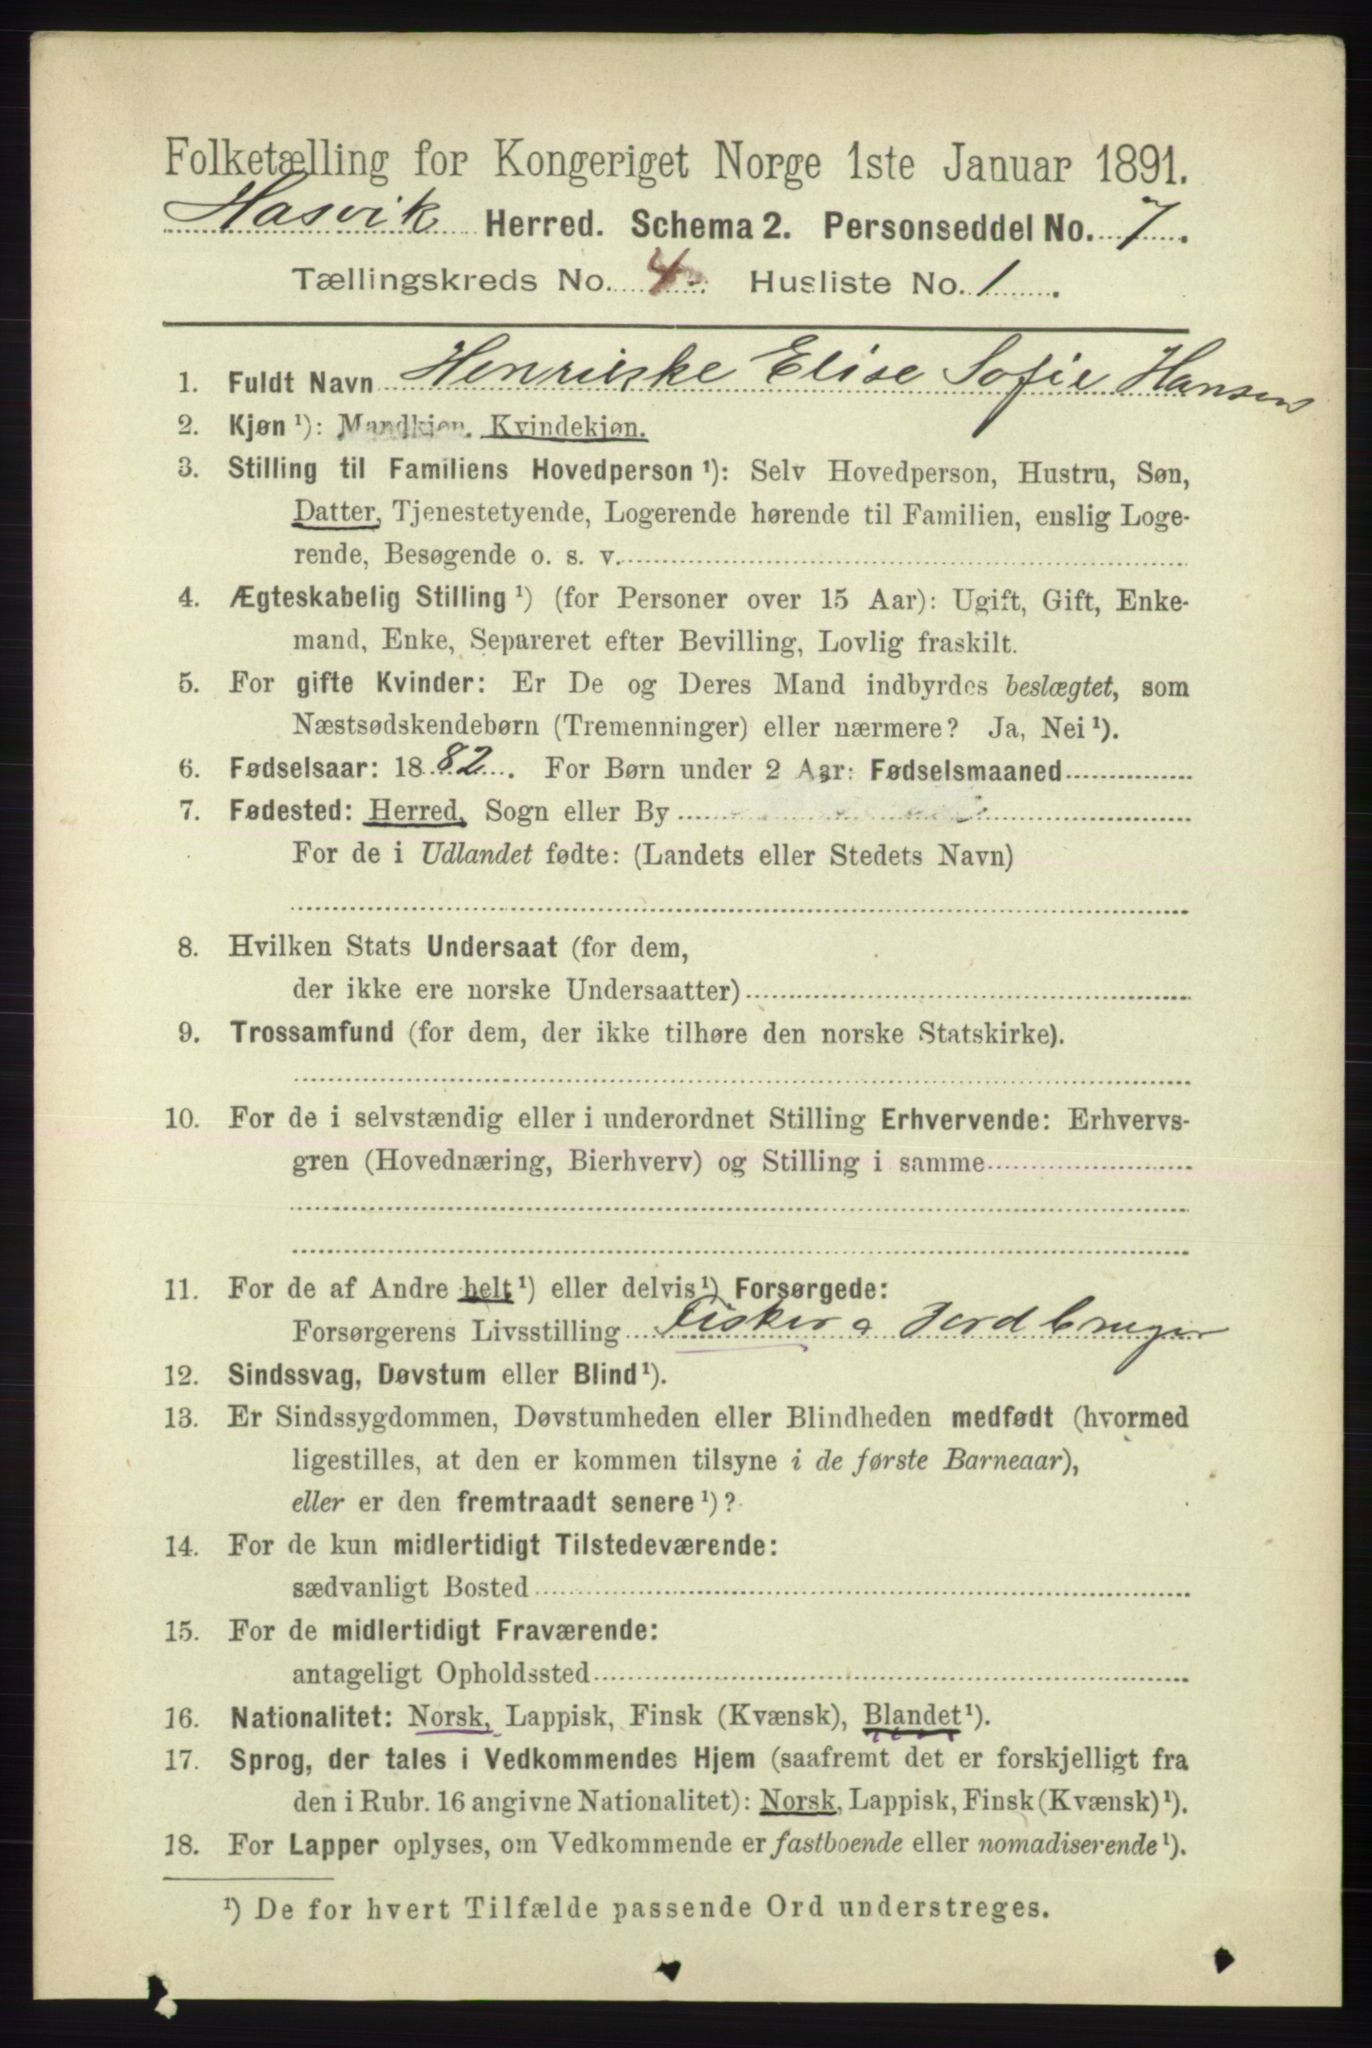 Folketælling for Kongeriget Norge 1ste Januar 1891.
Hasvik Herred. Schema 2. Personseddel No. 7.
Tællingskreds No. 4 Husliste No. 1.
1. Fuldt Navn Henrikke Elise Sofie Hansen
2. Kjøn ¹): Mandkjøn. Kvindekjøn.
3. Stilling til Familiens Hovedperson ¹): Selv Hovedperson, Hustru, Søn,
Datter, Tjenestetyende, Logerende hørende til Familien, enslig Loge-
rende, Besøgende o. s. v.
4. Ægteskabelig Stilling ¹) (for Personer over 15 Aar): Ugift, Gift, Enke-
mand, Enke, Separeret efter Bevilling, Lovlig fraskilt.
5. For gifte Kvinder: Er De og Deres Mand indbyrdes beslægtet, som
Næstsødskendebørn (Tremenninger) eller nærmere? Ja, Nei ¹).
6. Fødselsaar: 1882. For Børn under 2 Aar: Fødselsmaaned
7. Fødested: Herred, Sogn eller By
For de i Udlandet fødte: (Landets eller Stedets Navn)
8. Hvilken Stats Undersaat (for dem,
der ikke ere norske Undersaatter)
9. Trossamfund (for dem, der ikke tilhøre den norske Statskirke).
10. For de i selvstændig eller i underordnet Stilling Erhvervende: Erhvervs-
gren (Hovednæring, Bierhverv) og Stilling i samme
11. For de af Andre helt ¹) eller delvis ¹) Forsørgede:
Forsørgerens Livsstilling Fisker o Jordbruger
12. Sindssvag, Døvstum eller Blind ¹).
13. Er Sindssygdommen, Døvstumheden eller Blindheden medfødt (hvormed
ligestilles, at den er kommen tilsyne i de første Barneaar),
eller er den fremtraadt senere ¹)?
14. For de kun midlertidigt Tilstedeværende:
sædvanligt Bosted
15. For de midlertidigt Fraværende:
antageligt Opholdssted
16. Nationalitet: Norsk, Lappisk, Finsk (Kvænsk), Blandet ¹).
17. Sprog, der tales i Vedkommendes Hjem (saafremt det er forskjelligt fra
den i Rubr. 16 angivne Nationalitet): Norsk, Lappisk, Finsk (Kvænsk) ¹).
18. For Lapper oplyses, om Vedkommende er fastboende eller nomadiserende ¹).
¹) De for hvert Tilfælde passende Ord understreges.